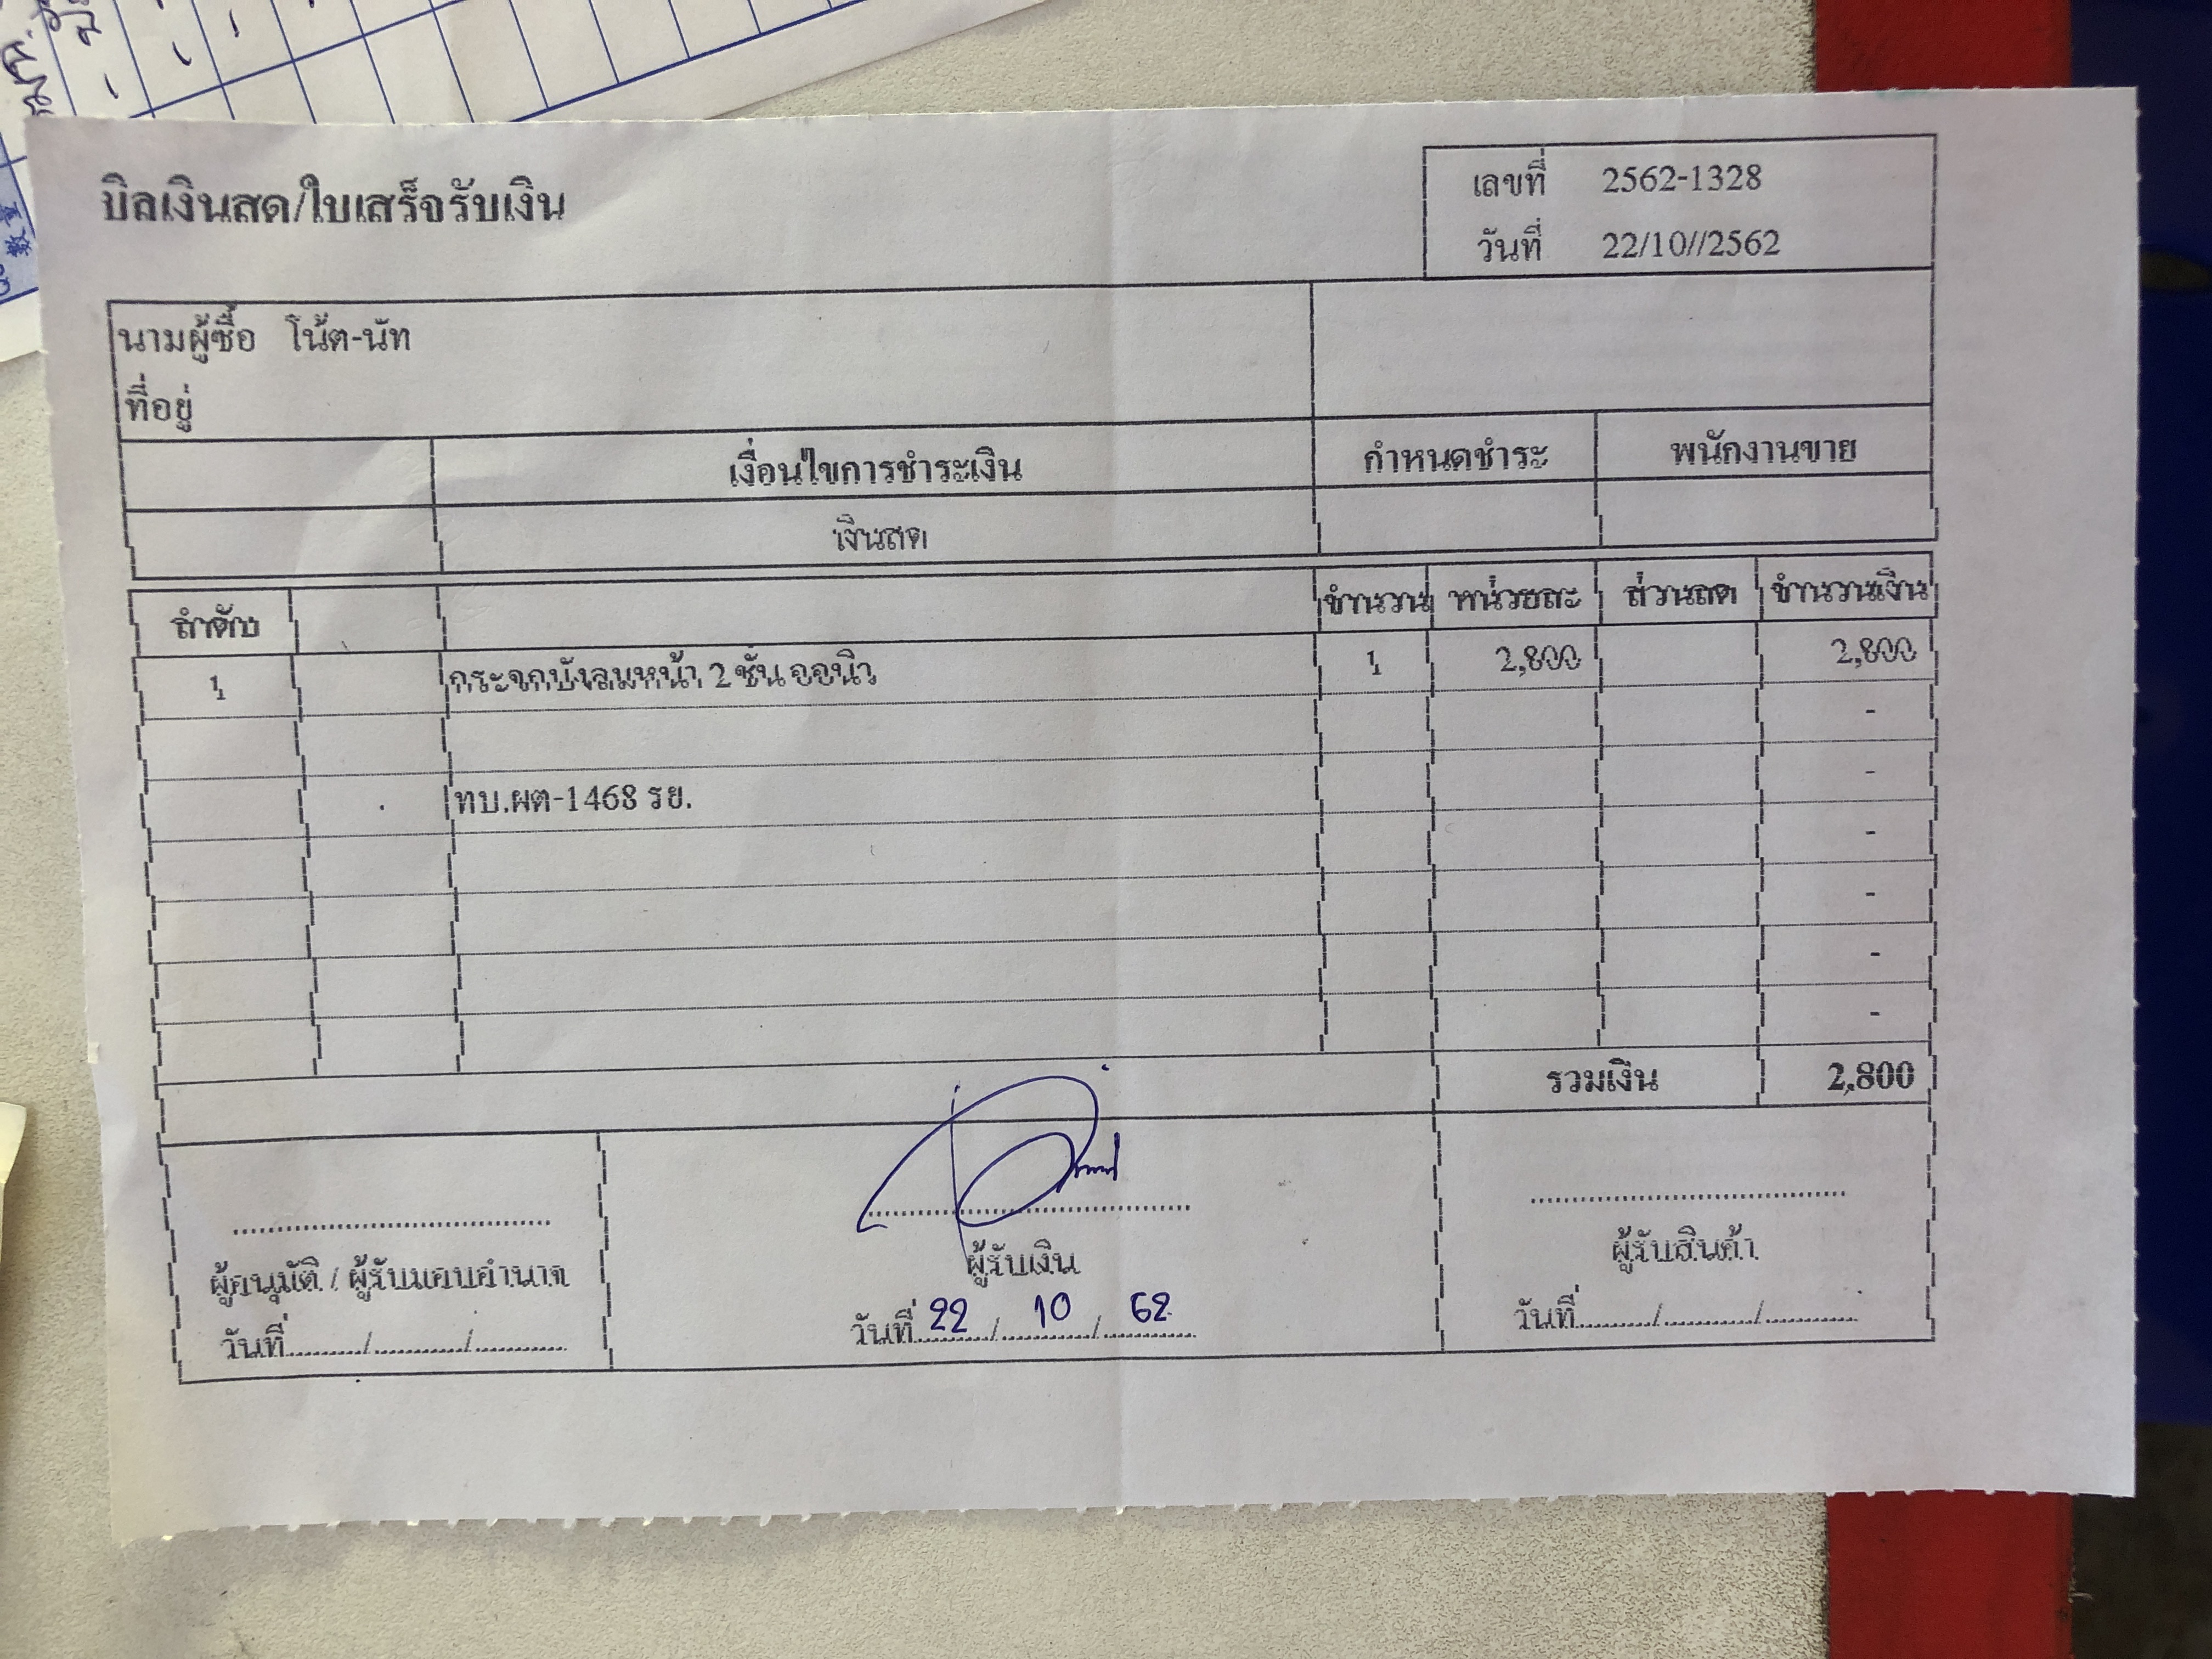 บิลเงินสด/ใบเสร็จรับเงิน
เลขที่ 2562-1328
วันที่ 22/10//2562
นามผู้ซื้อ โน้ต-นัท
ที่อยู่
เงื่อนไขการชำระเงิน กำหนดชำระ พนักงานขาย
เงินสด
ลำดับ จำนวน หน่วยละ ส่วนลด จำนวนเงิน
1 กระจกบังลมหน้า 2 ชั้น ออนิว 1 2,800 2,800
-
ทบ.ผต-1468 รย. -
-
-
-
-
รวมเงิน 2,800
ผู้อนุมัติ / ผู้รับมอบอำนาจ ผู้รับเงิน ผู้รับสินค้า
วันที่........../........../.......... วันที่ 22 / 10 / 62 วันที่........../........../..........